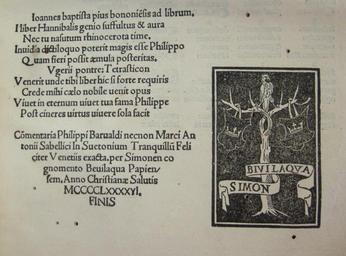 Ioannes baptista pius bononiẽsis ad librum.
I liber Hannibalis genio suffultus & aura
Nec tu nasutum rhinocerota time.
Inuidia dictiloquo poterit magis esse Philippo
Quam fieri possit æmula posteritas.
Vgerii pontre: Tetrasticon
Venerit unde tibi liber hic si forte requiris
Crede mihi cælo nobile uenit opus
Viuet in eternum uiuet tua fama Philippe
Post cineres uirtus uiuere sola facit
Cõmentaria Philippi Barualdi necnon Marci An
tonii Sabellici In Suetonium Tranquillũ Feli
citer Venetiis exacta, per Simonem co
gnomento Beuilaqua Papien
sem, Anno Christianæ Salutis
MCCCCLXXXXVI.
FINIS
BIVILAQVA
SIMON